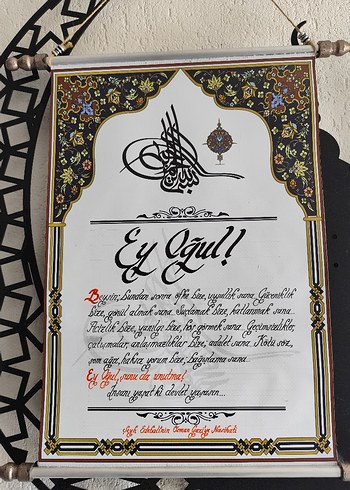 Ey Oğul!
Beysin; bundan sonra öfke bize, uysallık sana. Güceniklik
bize, gönül almak sana. Suçlamak bize, katlanmak sana.
Acizlik bize, yanılgı bize, hoş görmek sana. Geçimsizlikler,
çatışmalar, anlaşmazlıklar bize, adalet sana. Kötü söz,
şom ağız, haksız yorum bize, bağışlama sana.
Ey Oğul, şunu da unutma!
İnsanı yaşat ki devlet yaşasın...
Şeyh Edebali'nin Osman Gazi'ye Nasihati